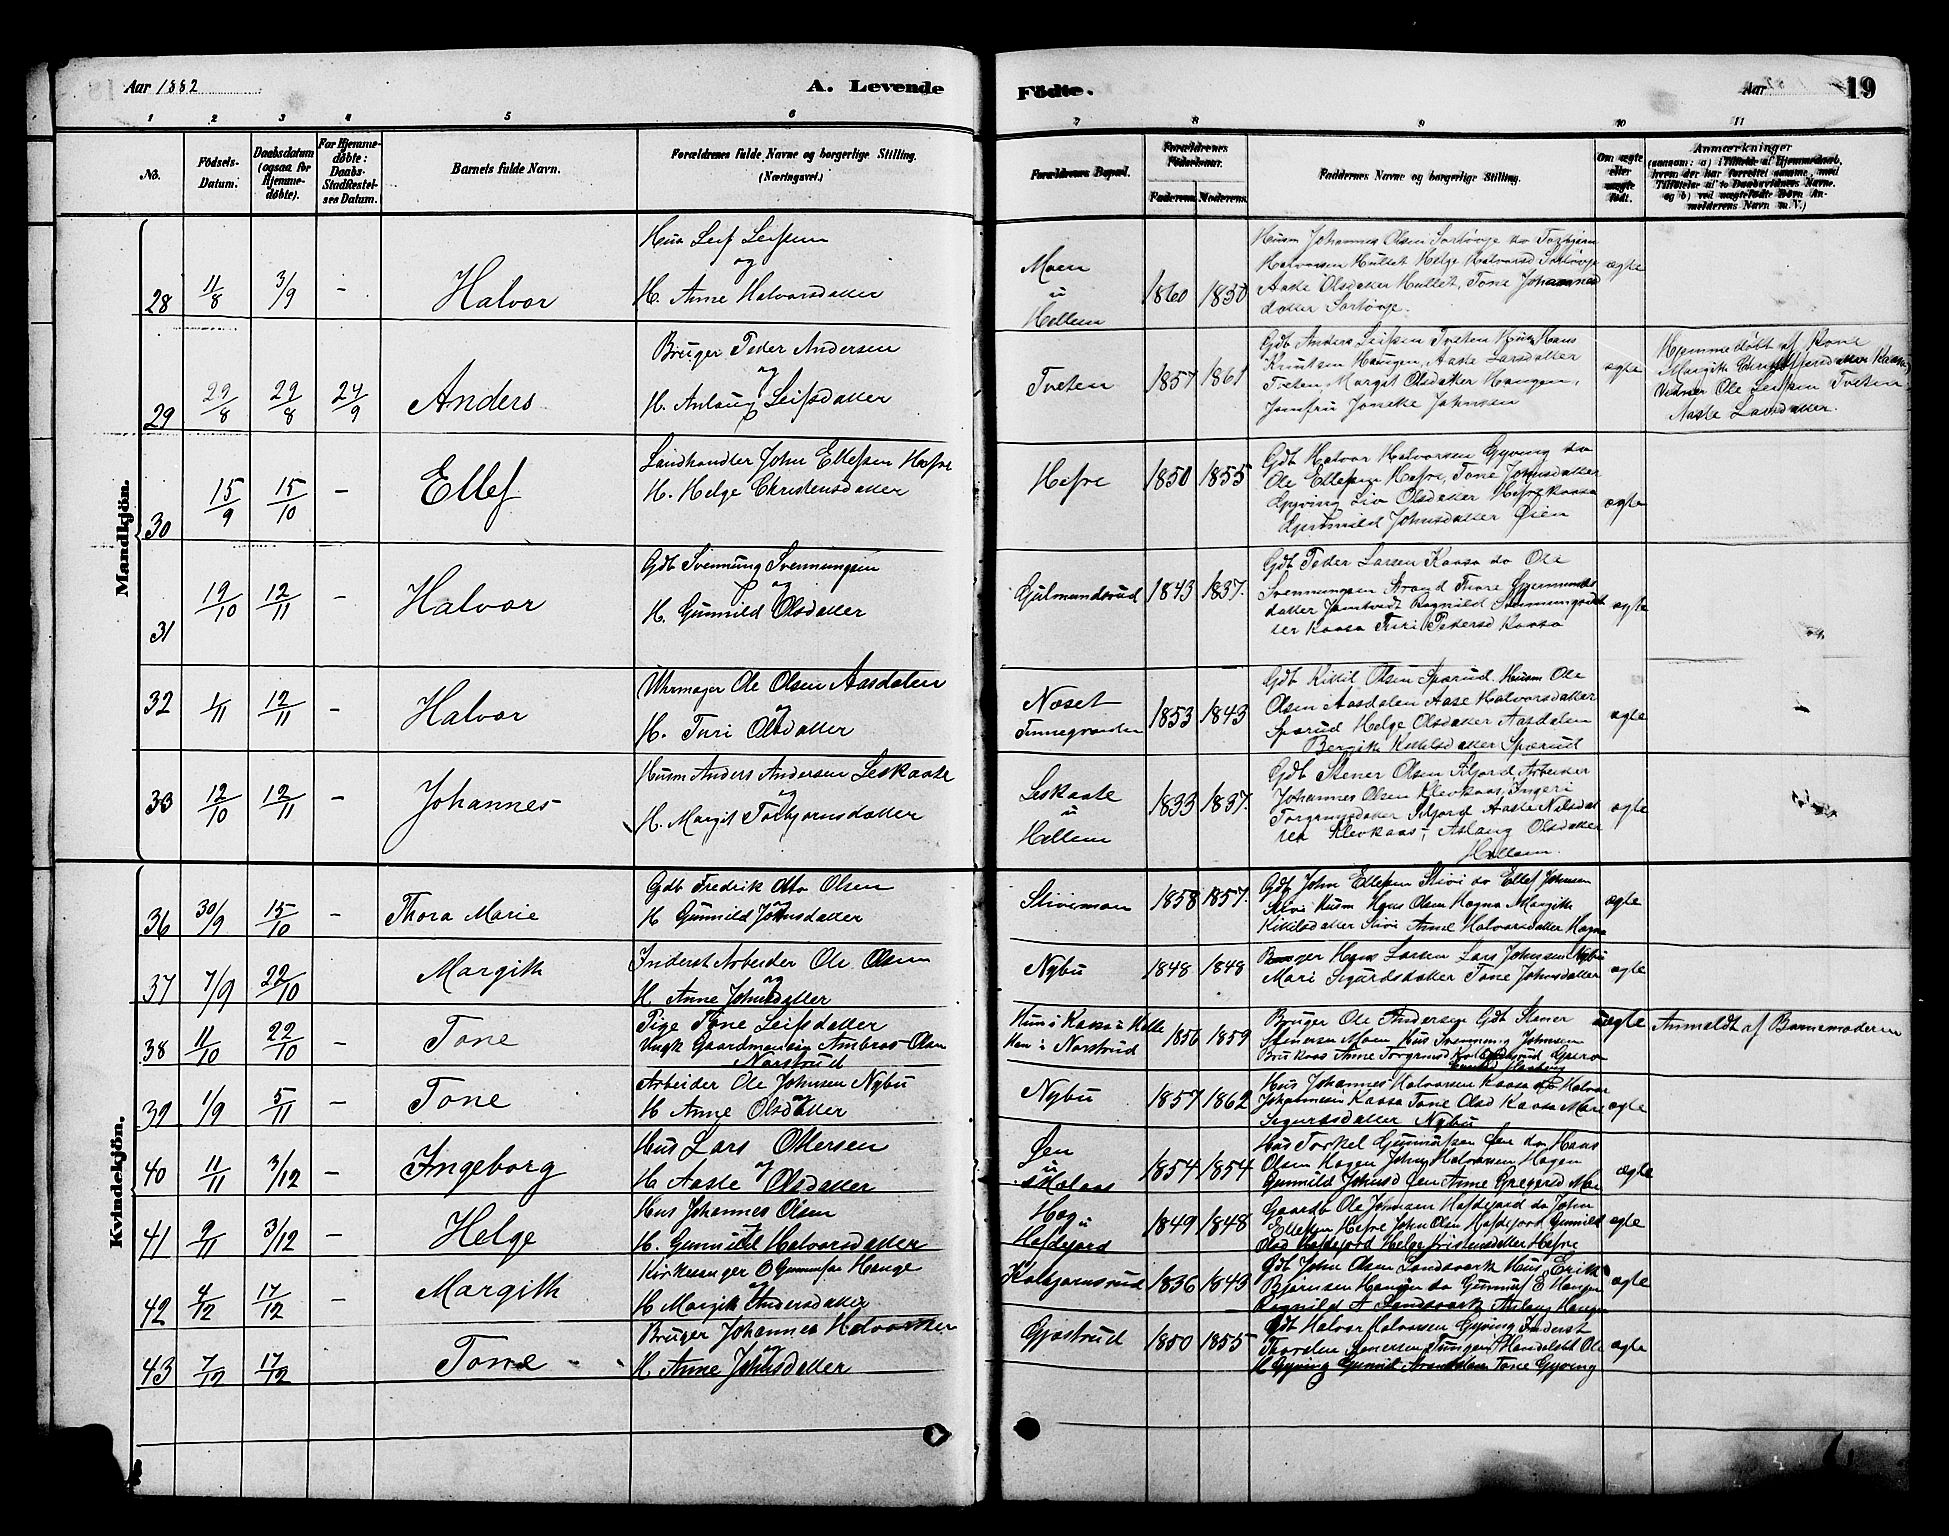 Aar 1882
A. Levende
Födte.
Aar
19
1 2 3 4 5 6 7 8 9 10 11
No.
Födsels-
Datum.
Daabsdatum
(ogsaa for
Hjemme-
døbte).
For Hjemme-
døbte:
Daabs-
Stadfæstel-
ses Datum.
Barnets fulde Navn.
Forældrenes fulde Navne og borgerlige Stilling.
(Næringsvei.)
Forældrenes Bopæl.
Forældrenes
Fødselsaar.
Faderens Moderens
Faddernes Navne og borgerlige Stilling.
Om ægte
eller
uægte
født.
Anmærkninger
Mandkjön.
28 11/8 3/9 - Halvor
Hus Leif Leifsen
og
H. Anne Halvorsdatter
Moen
u
Hellem
1860 1850
Husm Johannes Olsen Sortövje do Torbjörn
Halvorsen Hullet Helge Halvorsd Sortövje
Aaste Olsdatter Hullet, Tone Johannes
datter Sortövje.
ægte
29 29/8 29/8 24/9 Anders
Bruger Peder Andersen
og
H. Anlaug Leifsdatter
Tveten
1857 1861
Gdb Anders Leifsen Tveten Hus Hans
Knutsen Haugen, Aaste Larsdatter
Tveten Margit Olsdatter Haugen,
Jomfru Johnsen
ægte
Hjemmedöbt af Kone
Margith
Vidner Ole Leifsen Tveten
Aaste Larsdatter.
30 15/9 15/10 - Ellef
Landhandler John Ellefsen Hefre
H. Helge Christensdatter
Hefre
1850 1855
Gdb Halvor Halvorsen Gyving do
Ole Ellefsen Hefre, Tone Johnsdatter
Gyving Liv Olsdatter Hefrekaasa
Johnsdatter Øien
ægte
31 19/10 12/11 - Halvor
Gdb Svennung Svennungsen
og
H. Gunnild Olsdatter
Gulmundsrud
1843 1837.
Gdb Peder Larsen Kaasa do Ole
Svennungsen Tone
datter Jamtvedt Ragnild Svennungsdat
ter Kaasa Turi Pedersd Kaasa
ægte
32 1/11 12/11 - Halvor
Uhrmager Ole Olsen Aasdalen
og
H. Turi Olsdatter
Noset
Tinnegrænden
1853 1843
Gdb Kittil Olsen Spærud Husm Ole
Olsen Aasdalen Aase Halvorsdatter
Spærud Helge Olsdatter Aasdalen
Bergith Kittilsdatter Spærud
ægte
33 12/10 12/11 - Johannes
Husm Anders Andersen Leskaase
og
H. Margit Torbjornsdatter
Leskaase
u
Hellem
1833 1837.
Gdb Stener Olsen Arbeider
Johannes Olsen Klevkaas, Ingeri
Torgrimsdatter Aaste Nilsdat
ter Klevkaas, Aslaug Olsdatter
Hellem.
ægte
Kvindekjön.
36 30/9 15/10 - Thora Marie
Gdb Fredrik Otto Olsen
og
H Gunnild Johnsdatter
Stivimoen
1858 1857.
Gdb John Ellefsen Stivi do Ellef Johnsen
Stivi Husm Hans Olsen Hagna Margith
Kittilsdatter Stivi Anne Halvorsdatter Hagna
ægte
37 7/9 22/10 Margith
Inderst Arbeider Ole Olsen
og
H Anne Johnsdatter
Nybu
1848 1848
Bruger Hans Larsen Lars Johnsen Nybu
Mari Sigurdsdatter Tone Johnsdatter
ægte
38 11/10 22/10 - Tone
Pige Tone Leifsdatter
Ungk Gaardmandssön Ambros Olsen
Norstrud
Hun i Kaasa u Helle
Han i Norstrud
1856 1859
Bruger Ole Andersen Gdb Stener
Stenersen Moen Hus Svennung Johnsen
Brukaas Anne Torgrimsd
uægte
Anmeldt af Barnemoderen
39 1/9 5/11 - Tone
Arbeider Ole Johnsen Nybu
og
H Anne Olsdatter
Nybu
1857 1862
Hus Johannes Halvorsen Kaasa do Halvor
Johannesen Kaasa Tone Olsd Kaasa Mari
Sigurdsdatter Nybu
ægte
40 11/11 3/12 - Ingeborg
Hus Lars Ottersen
og
H Aaste Olsdatter
Øen
u
1854 1854
Hus Torkel Gunnulfsen Øen do Hans
Olsen Hagen John Halvorsen Hagen
Gunnild Johnsd Øen Anne Gregersd
ægte
41 9/11 3/12 - Helge
Hus Johannes Olsen
H. Gunnild Halvorsdatter
Hag
u
Hafdejord
1849 1848
Gaardb Ole Johnsen Hafdejord do John
Ellefsen Hefre John Olsen Hafdejord Gunnild
Olsd Hafdejord Helge Kristensdatter Hefre
ægte
42 4/12 17/12 - Margith
Kirkesanger O Gunnulfsen Hauge
og
H Margith Andersdatter
Kolbjørnsrud
1836 1843
Gdb John Olsen Landsverk Hus Erik
Björnsen Haugen do Gunnulf E Haugen
Ragnild A Landsverk Anlaug Haugen
ægte
43 7/12 17/12 Tone
Bruger Johannes Halvorsen
og
H Anne Johnsdatter
Gjøstrud
1850 1855
Gdb Halvor Halvorsen Gyving Inderst
Thorsten Stenersen Ole
H Gyving Gunnild Tone Gyving
ægte